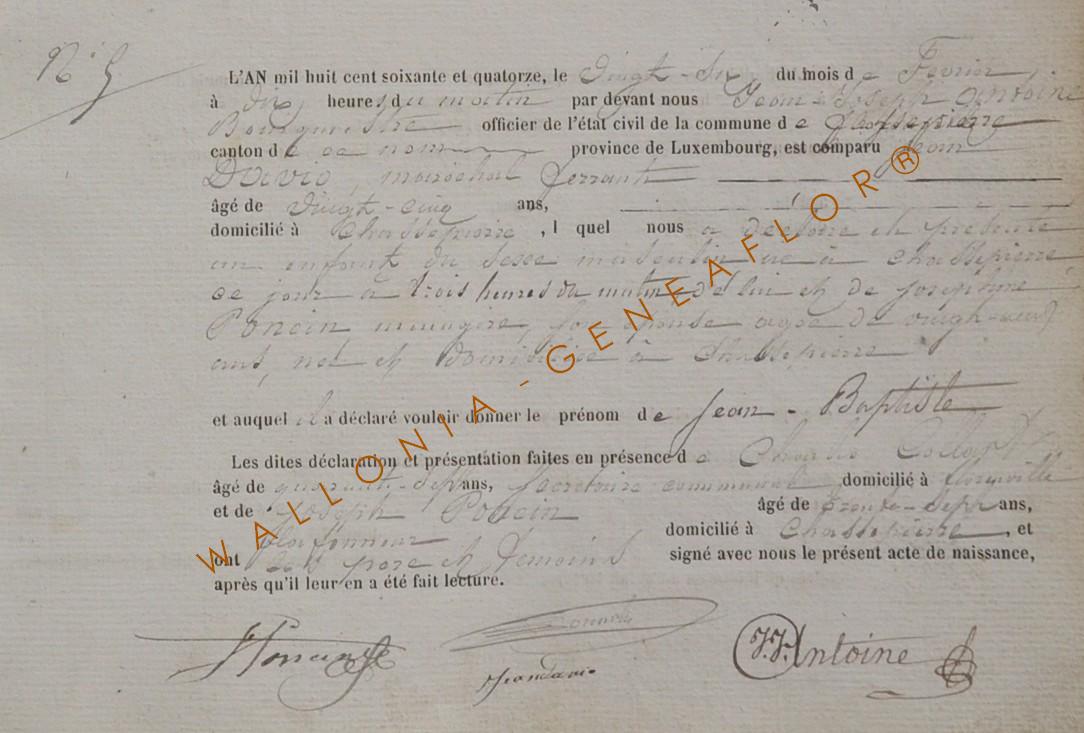 N° 5
L'AN mil huit cent soixante et quatorze, le vingt-six du mois de Février
à dix heures du matin par devant nous Jean-Joseph Antoine
Bourgmestre officier de l'état civil de la commune de Chassepierre
canton de ce nom province de Luxembourg, est comparu Jean
David, maréchal ferrant
âgé de vingt-cinq ans,
domicilié à Chassepierre, l quel nous a déclaré et présenté
un enfant du sexe masculin né à Chassepierre
ce jour à trois heures du matin de lui et de Joséphine
Poncin ménagère, son épouse agée de vingt-neuf
ans, née et domiciliée à Chassepierre
et auquel il a déclaré vouloir donner le prénom de Jean-Baptiste
Les dites déclaration et présentation faites en présence de Charles
âgé de quarante-sept ans, secrétaire communal domicilié à Florenville
et de Joseph Poncin âgé de trente-sept ans,
plafonneur domicilié à Chassepierre, et
ont les père et témoins signé avec nous le présent acte de naissance,
après qu'il leur en a été fait lecture.
J Poncin
Jean David
J.J. Antoine
WALLONIA-GENEAFLOR®